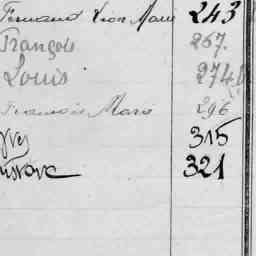 Fernand Léon Marie 243
François 267.
Louis 274
François Marie 296
Yves 315
321